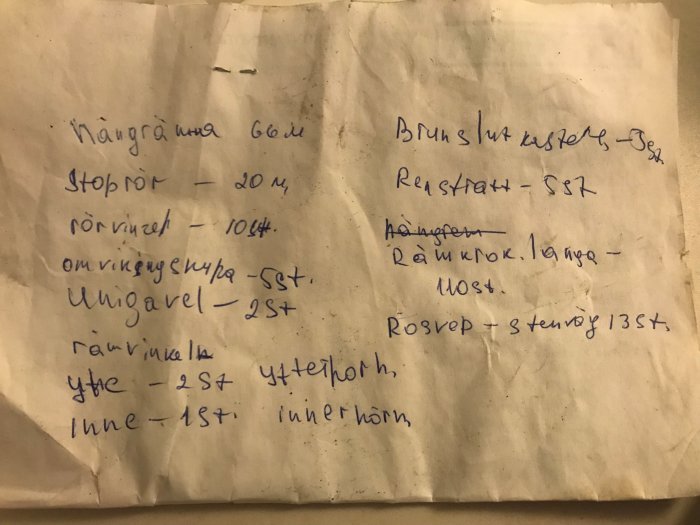 Hängränna 66 м
Stoprör - 20 м,
rörvinkel - 10st.
omvikningskupa - 5st.
Unigavel - 2st
rämvinkeln
ytre - 2st ytterhorn,
inne - 1st. innerhörn,
Brunslut kasteln, - 3st
Renstratt - 5st
hängrem
Rämkrok. langa -
110st.
Rosvep - stenväg 13st.